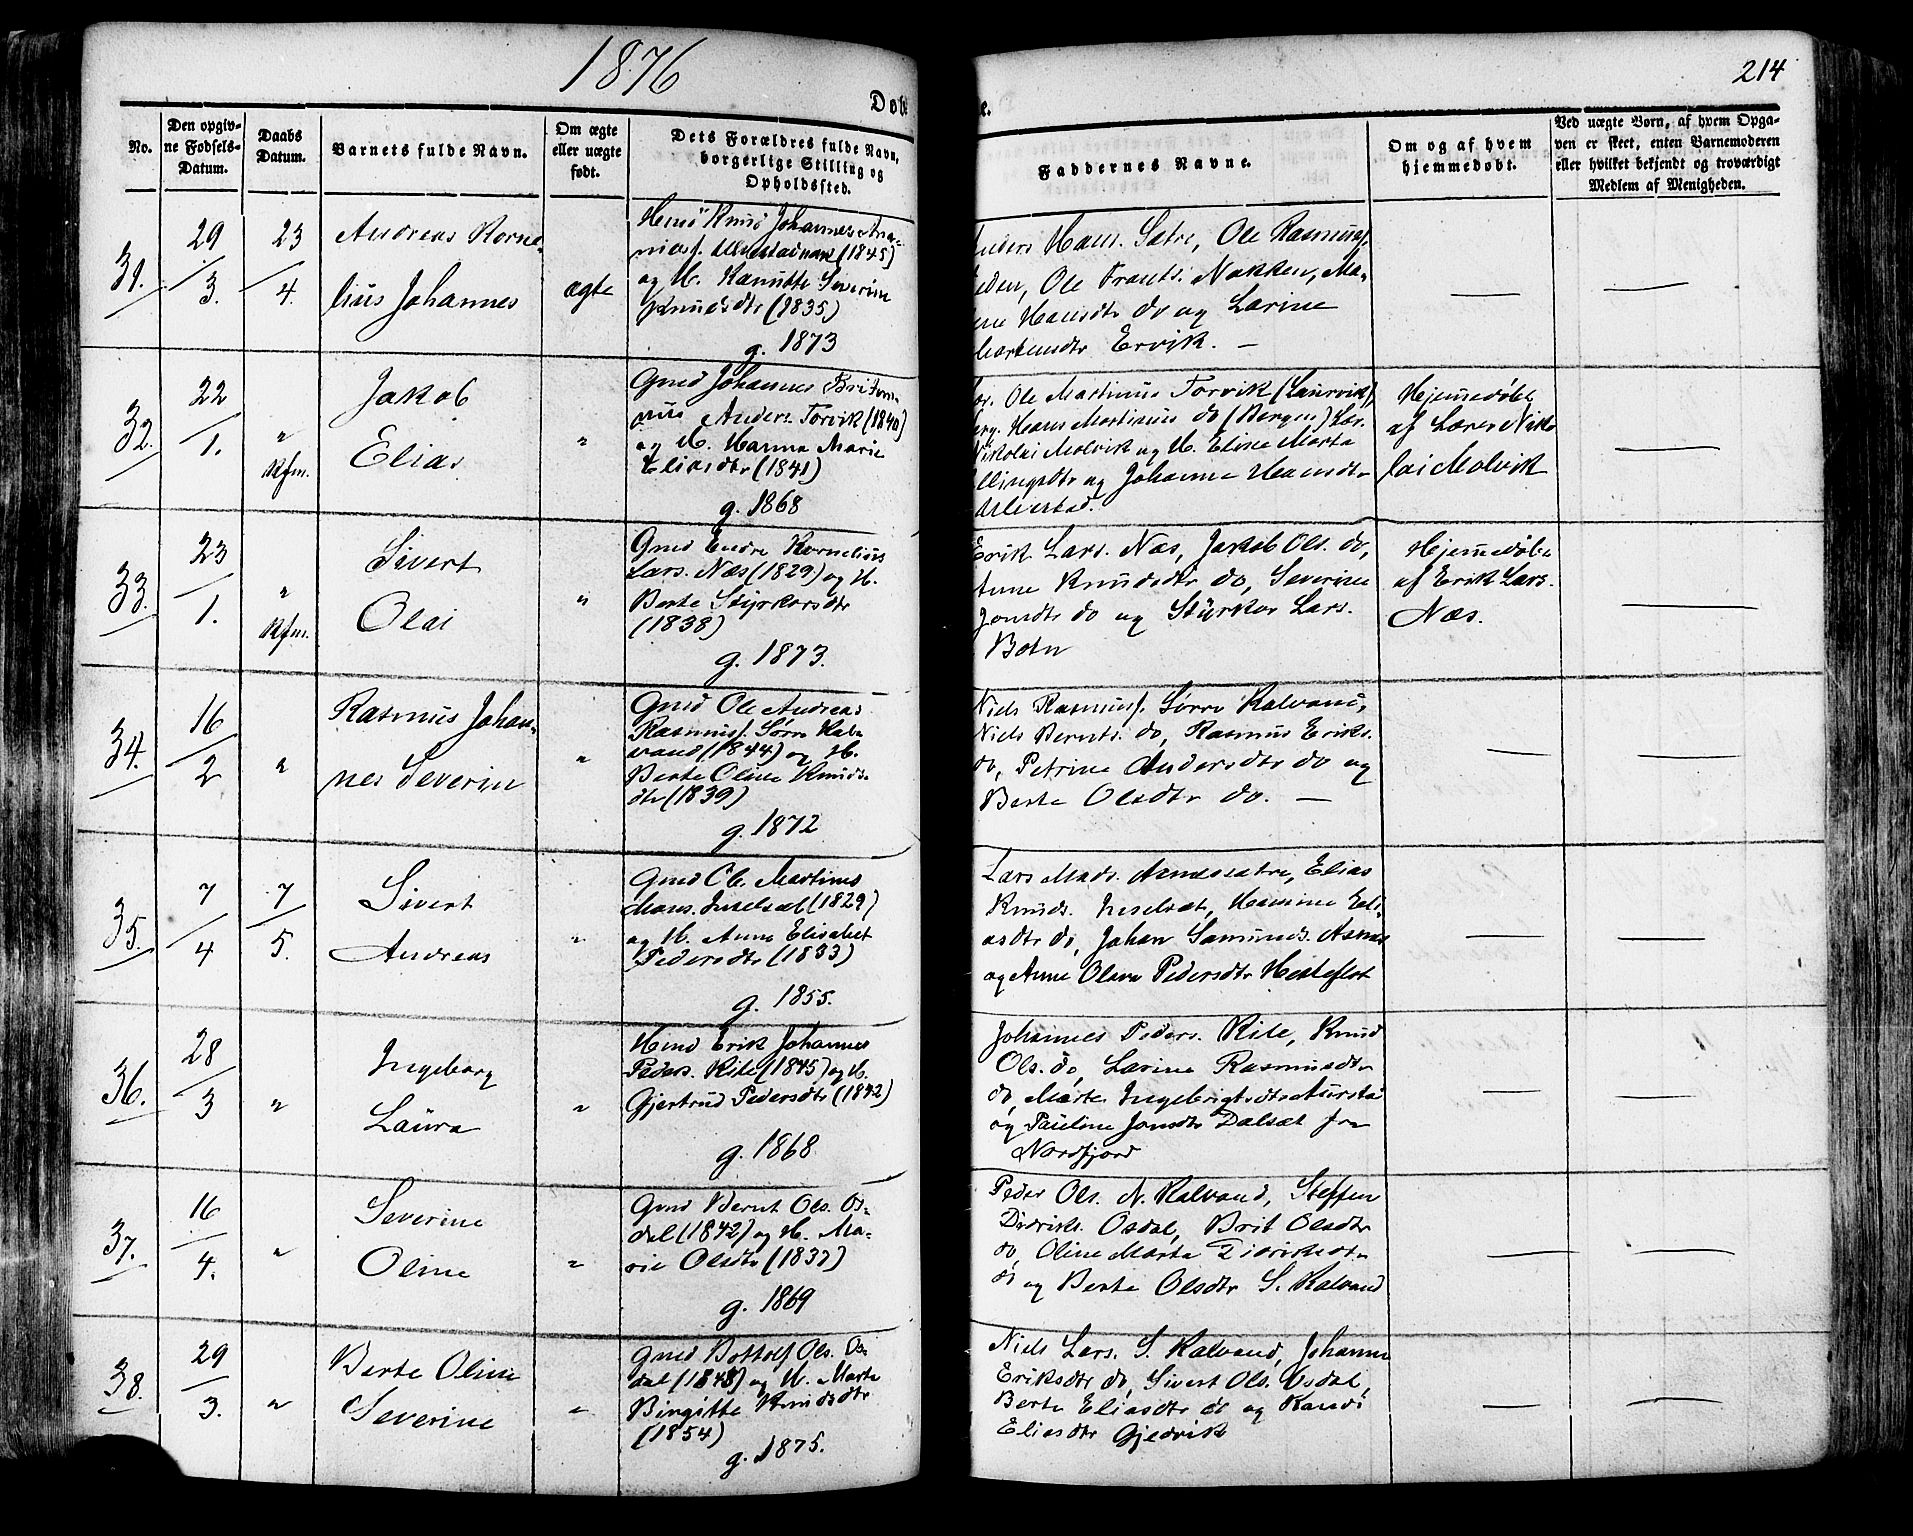 1876
214
Døbte.
No.
Den opgivne Fødsels-Datum.
Daabs Datum.
Barnets fulde Navn.
Om ægte eller uægte født.
Dets Forældres fulde Navn, borgerlige Stilling og Opholdssted.
Faddernes Navne.
Om og af hvem hjemmedøbt.
Ved uægte Børn, af hvem Opgaven er skeet, enten Barnemoderen eller hvilket bekjendt og troværdigt Medlem af Menigheden.
31.
29/3.
23/4.
Andreas Korne-
lius Johannes
ægte
Johannes Ana-
nias. (1845)
og H. Severine
Knudsdtr (1835)
g. 1873
Anders Hans. Sætre, Ole Rasmuss.
Ole Frants. Nakken, Ma-
Hansdtr do og Larine
Ervik. —
—
—
32.
22/1.
" Kfm.
Jakob
Elias
"
Gmd Johannes
Anders. Torvik (1840)
og H. Hanna Marie
Eliasdtr (1841)
g. 1868
Ole Martinus Torvik (Laurvik),
Hans Martinus do (Bergen) Lær.
Nikolai Molvik og H. Elise Marta
Ellingsdtr og Johanne Hansdtr
Hjemmedøbt
af Lærer Niko-
lai Molvik
—
33.
23/1.
" Kfm.
Sivert
Olai
"
Gmd Endre Kornelius
Lars. Næs (1829) og H.
Berte Styrkorsdtr
(1838)
g. 1873.
Erik Lars. Næs, Jakob Ols. do,
Anne Knudsdtr do, Severine
Jonsdtr do og Styrkor Lars.
Botn
Hjemmedøbt
af Erik Lars.
Næs.
—
34.
16/2
"
Rasmus Johan-
nes Severin
"
Gmd Ole Andreas
Rasmuss. Sørre Kal-
vand (1844) og H.
Berte Oline Knuds-
dtr (1839)
g. 1872
Niels Rasmuss. Sørre Kalvand,
Niels Bernts. do, Rasmus Eriks.
do, Petrine Andersdtr do og
Berte Olsdtr do. —
—
—
35.
7/4
7/5.
Sivert
Andreas
"
Gmd Ole Martinus
Hans. Inselsæt (1829)
og H. Anne Elisabet
Pedersdtr (1833)
g. 1855.
Lars Mads. Aamessætre, Elias
Knuds. Inselsæt, Hansine Eli-
asdtr do, Johan Samunds. Aamæs
og Anne Olava Pedersdtr Hesteflot
—
—
36.
28/3
"
Ingeborg
Laura
"
Hmd Erik Johannes
Peders. Kile (1845) og H.
Gjertrud Pedersdtr (1842)
g. 1868
Johannes Peders. Kile, Knud
Ols. do, Larine Rasmusdtr
do, Marte Ingebrigtsdtr Aurstad
og Pauline Jonsdtr Dalsæt fra
Nordfjord
—
—
37.
16/4.
"
Severine
Oline
"
Gmd Bernt Ols. Os-
dal (1842) og H. Ma-
rie Olsdtr (1837)
g. 1869
Peder Ols. N. Kalvand, Steffen
Didriks. Osdal, Brit Olsdtr
do, Oline Marta Didriksdtr
do og Berte Olsdtr S. Kalvand
—
—
38.
29/3.
"
Berte Oline
Severine
"
Gmd Bottolf Ols. Os-
dal (1848) og H. Marte
Birgitte Knudsdtr
(1854)
g. 1875.
Niels Lars. S. Kalvand, Johanne
Eriksdtr do, Sivert Ols. Osdal,
Berte Eliasdtr do og Randi
Eliasdtr Gjedvik
—
—